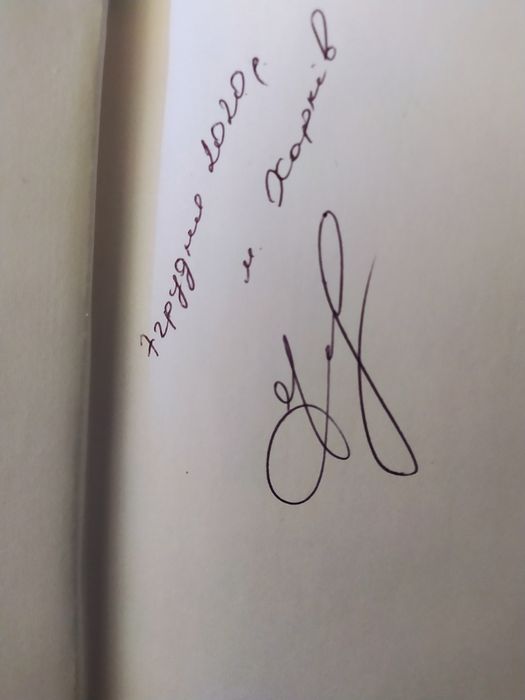 7 грудня 2020 р.
м. Харків